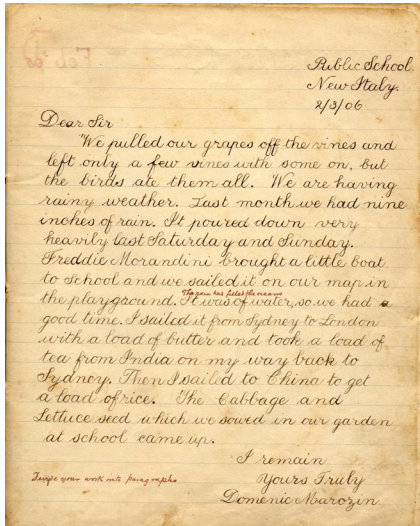 Public School
New Italy.
2/3/06
Dear Sir
We pulled our grapes off the vines and
left only a few vines with some on, but
the birds ate them all. We are having
rainy weather. Last month we had nine
inches of rain. It poured down very
heavily last Saturday and Sunday.
Freddie Morandini brought a little boat
to School and we sailed it on our map in
The rain had filled the oceans
the playground. It was of water, so we had a
good time. I sailed it from Sydney to London
with a load of butter and took a load of
tea from India on my way back to
Sydney. Then I sailed to China to get
a load of rice. The Cabbage and
Lettuce seed which we sowed in our garden
at school came up.
I remain
Yours Truly
Divide your work into paragraphs
Domenic Marozin